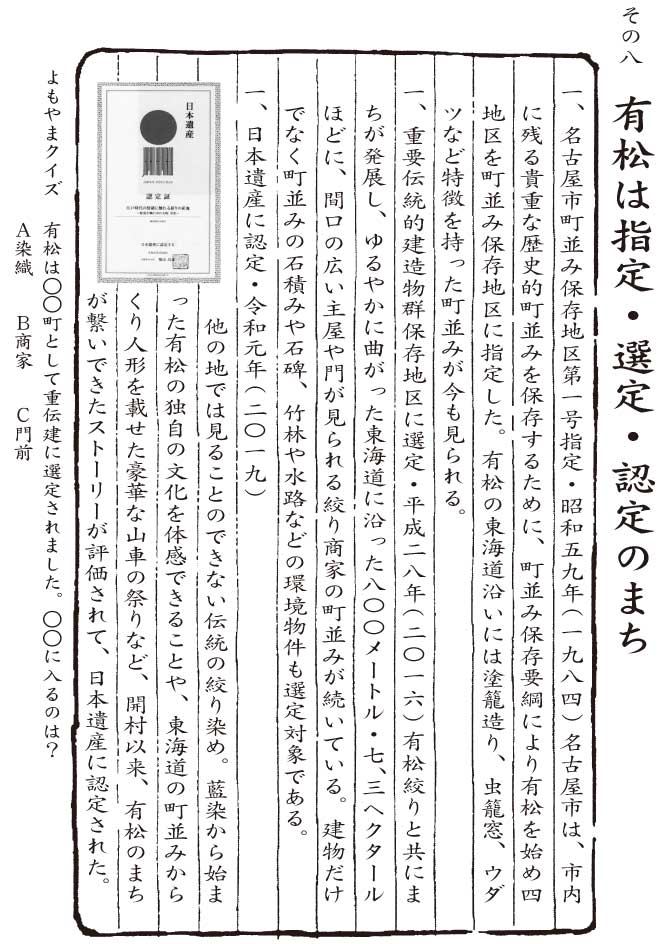 その八
有松は指定・選定・認定のまち
一、名古屋市町並み保存地区第一号指定・昭和五九年（一九八四）名古屋市は、市内
に残る貴重な歴史的町並みを保存するために、町並み保存要綱により有松を始め四
地区を町並み保存地区に指定した。有松の東海道沿いには塗籠造り、虫籠窓、ウダ
ツなど特徴を持った町並みが今も見られる。
一、重要伝統的建造物群保存地区に選定・平成二八年（二〇一六）有松絞りと共にま
ちが発展し、ゆるやかに曲がった東海道に沿った八〇〇メートル・七、三ヘクタール
ほどに、間口の広い主屋や門が見られる絞り商家の町並みが続いている。建物だけ
でなく町並みの石積みや石碑、竹林や水路などの環境物件も選定対象である。
一、日本遺産に認定・令和元年（二〇一九）
他の地では見ることのできない伝統の絞り染め。藍染から始ま
った有松の独自の文化を体感できることや、東海道の町並みから
くり人形を載せた豪華な山車の祭りなど、開村以来、有松のまち
が繋いできたストーリーが評価されて、日本遺産に認定された。
日本遺産
認定証
よもやまクイズ　有松は〇〇町として重伝建に選定されました。〇〇に入るのは？
Ａ染織　Ｂ商家　Ｃ門前